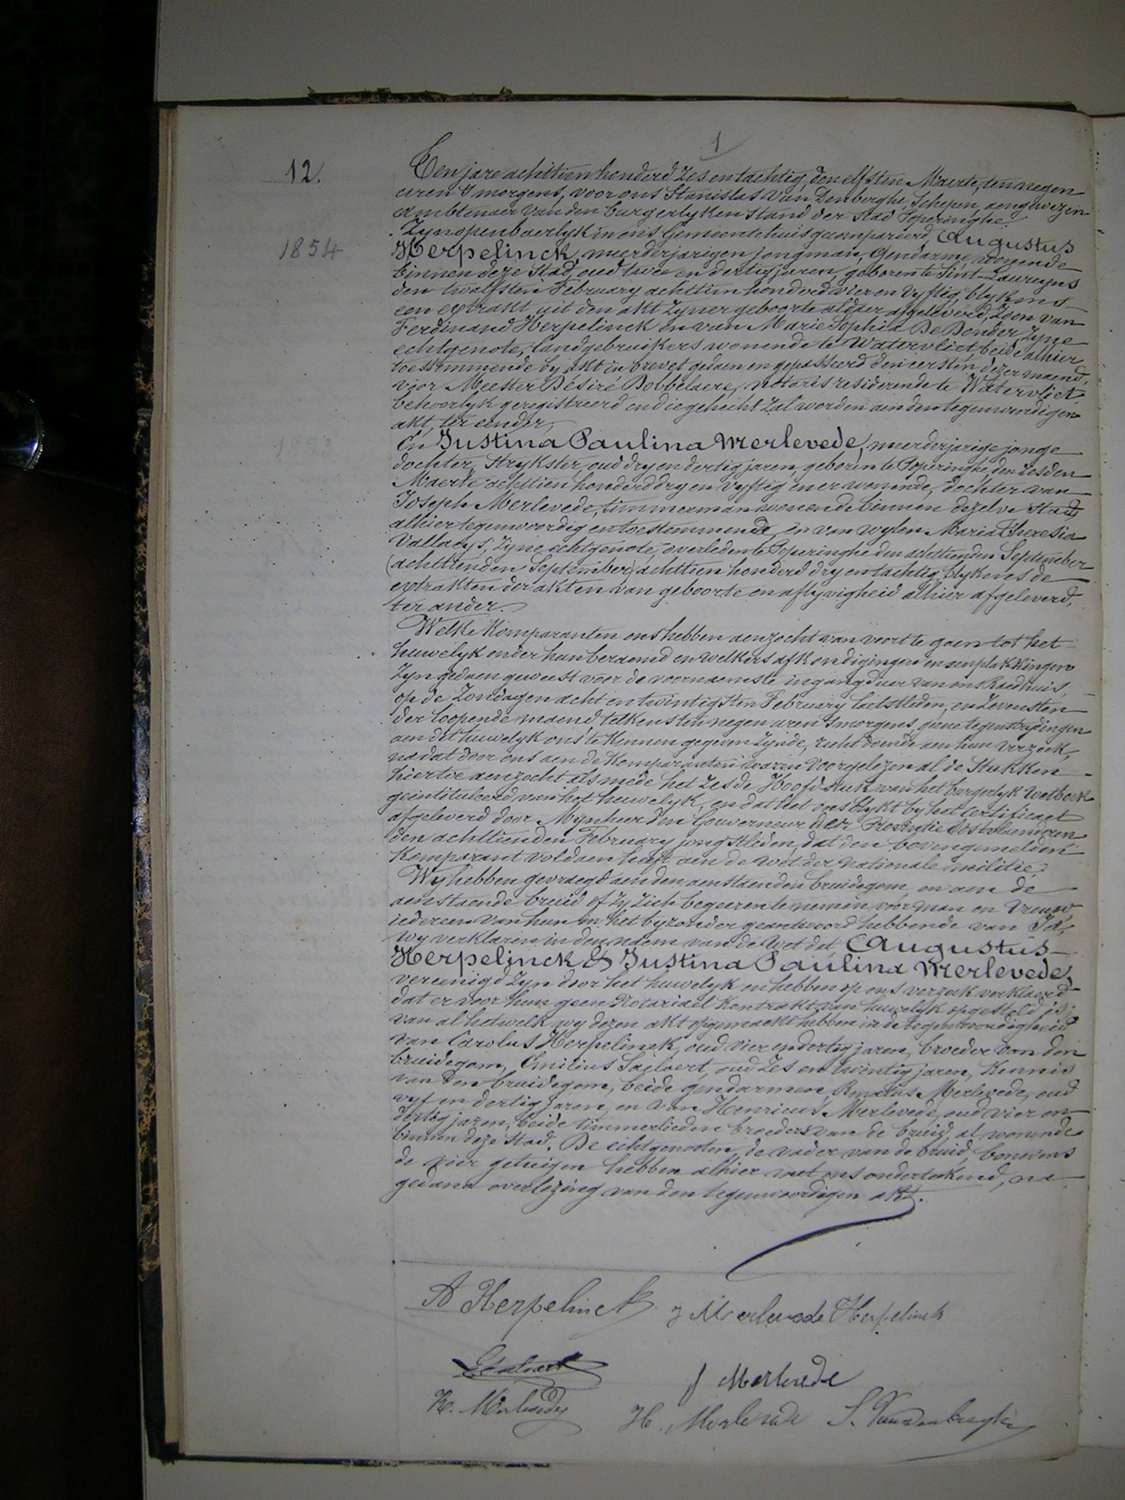 1
12.
Ten jare achttien honderd zes en tachtig, den elfsten Maerte, ten negen
uren 's morgens, voor ons Stanislas Van Denberghe, Schepen, aengewezen
ambtenaer van den burgerlyken stand der stad Poperinghe
Zyn openbaerlyk in ons Gemeentehuis gecompareerd, Augustus
1854
Herpelinck, meerderjarigen jongman, Gendarm, woonende
binnen deze stad, oud twee en dertig jaren, geboren te Sint Laureyns
den twalfsten February achttien honderd vier en vyftig, blykens
een extrakt uit den akt zyner geboorte aldaer afgeleverd, Zoon van
Ferdinand Herpelinck en van Marie Sophia De Donder, zyne
echtgenote, landgebruikers wonende te Watervliet, beide alhier
toestemmende by akt in brevet gedaen en gepasseerd den eersten dezer maend,
voor Meester Désiré Dobbelaere, notaris residerende te Watervliet,
behoorlyk geregistreerd en die gehecht zal worden aen den tegenwoordigen
akt, ter eender,
1853
En Justina Paulina Merlevede, meerderjarige jonge
dochter, strykster, oud dry en dertig jaren, geboren te Poperinghe, den zesden
Maerte achttien honderd dry en vyftig en er wonende, dochter van
Joseph Merlevede, timmerman wonende binnen dezelve stad
alhier tegenwoordig en toestemmende, en van wylen Maria Theresia
Vallaeys, zyne echtgenote, overleden te Poperinghe den achttienden September
(achttienden September) achttien honderd dry en tachtig, blykens de
extrakten der akten van geboorte en aflyvigheid alhier afgeleverd,
ter ander.
Welke Komparanten ons hebben aenzocht van voort te gaen tot het
huwelyk onder hun beraemd en welkers afkondigingen en aenplakkingen
zyn gedaen geweest voor de voornaemste ingangdeur van ons Raedhuis,
op de Zondagen acht en twintigsten February laetstleden, en zevensten
der loopende maend telkens ten negen uren 's morgens, geene tegenstrydingen
aen dit huwelyk ons te kennen gegeven zynde, recht doende aen hun verzoek,
na dat door ons aen de Komparanten waren voorgelezen al de Stukken
hiertoe aenzocht als mede het zesde Hoofdstuk van het burgerlyk Wetboek
geïntituleerd, van het huwelyk, en dat het ons blykt by het certificaet
afgeleverd door Mynheer den Gouverneur der Provintie Oostvlaendren
den achttienden February jongstleden, dat den bovengemelden
Komparant voldaen heeft aen de wet der nationale militie
Wy hebben gevraegd aen den aenstaenden bruidegom en aen de
aenstaende bruid of zy zich begeeren te nemen voor man en vrouw
iedereen van hun in het byzonder geantwoord hebbende van Ja,
wy verklaren in den naem van de Wet dat Augustus
Herpelinck & Justina Paulina Merlevede,
vereenigd zyn door het huwelyk en hebben op ons verzoek verklaerd
dat er voor hun geen Notariael Kontrakt van huwelyk opgesteld is;
van al hetwelk wy dezen akt opgemaekt hebben in de tegenwoordigheid
van Carolus Herpelinck, oud vier en dertig jaren, broeder van den
bruidegom, Emilius oud zes en twintig jaren, Kennis
van den bruidegom, beide gendarmen, Renatus Merlevede, oud
vyf en dertig jaren, en van Henricus Merlevede, oud vier en
dertig jaren, beide timmerlieden broeders van de bruid, al wonende
binnen deze stad. De echtgenooten, de vader van de bruid, benevens
de vier getuigen hebben alhier met ons onderteekend, na
gedane overlezing van den tegenwoordigen akt.
A Herpelinck J Merlevede Herpelinck
J Merlevede
R. Merlevede H. Merlevede S. Vandenberghe